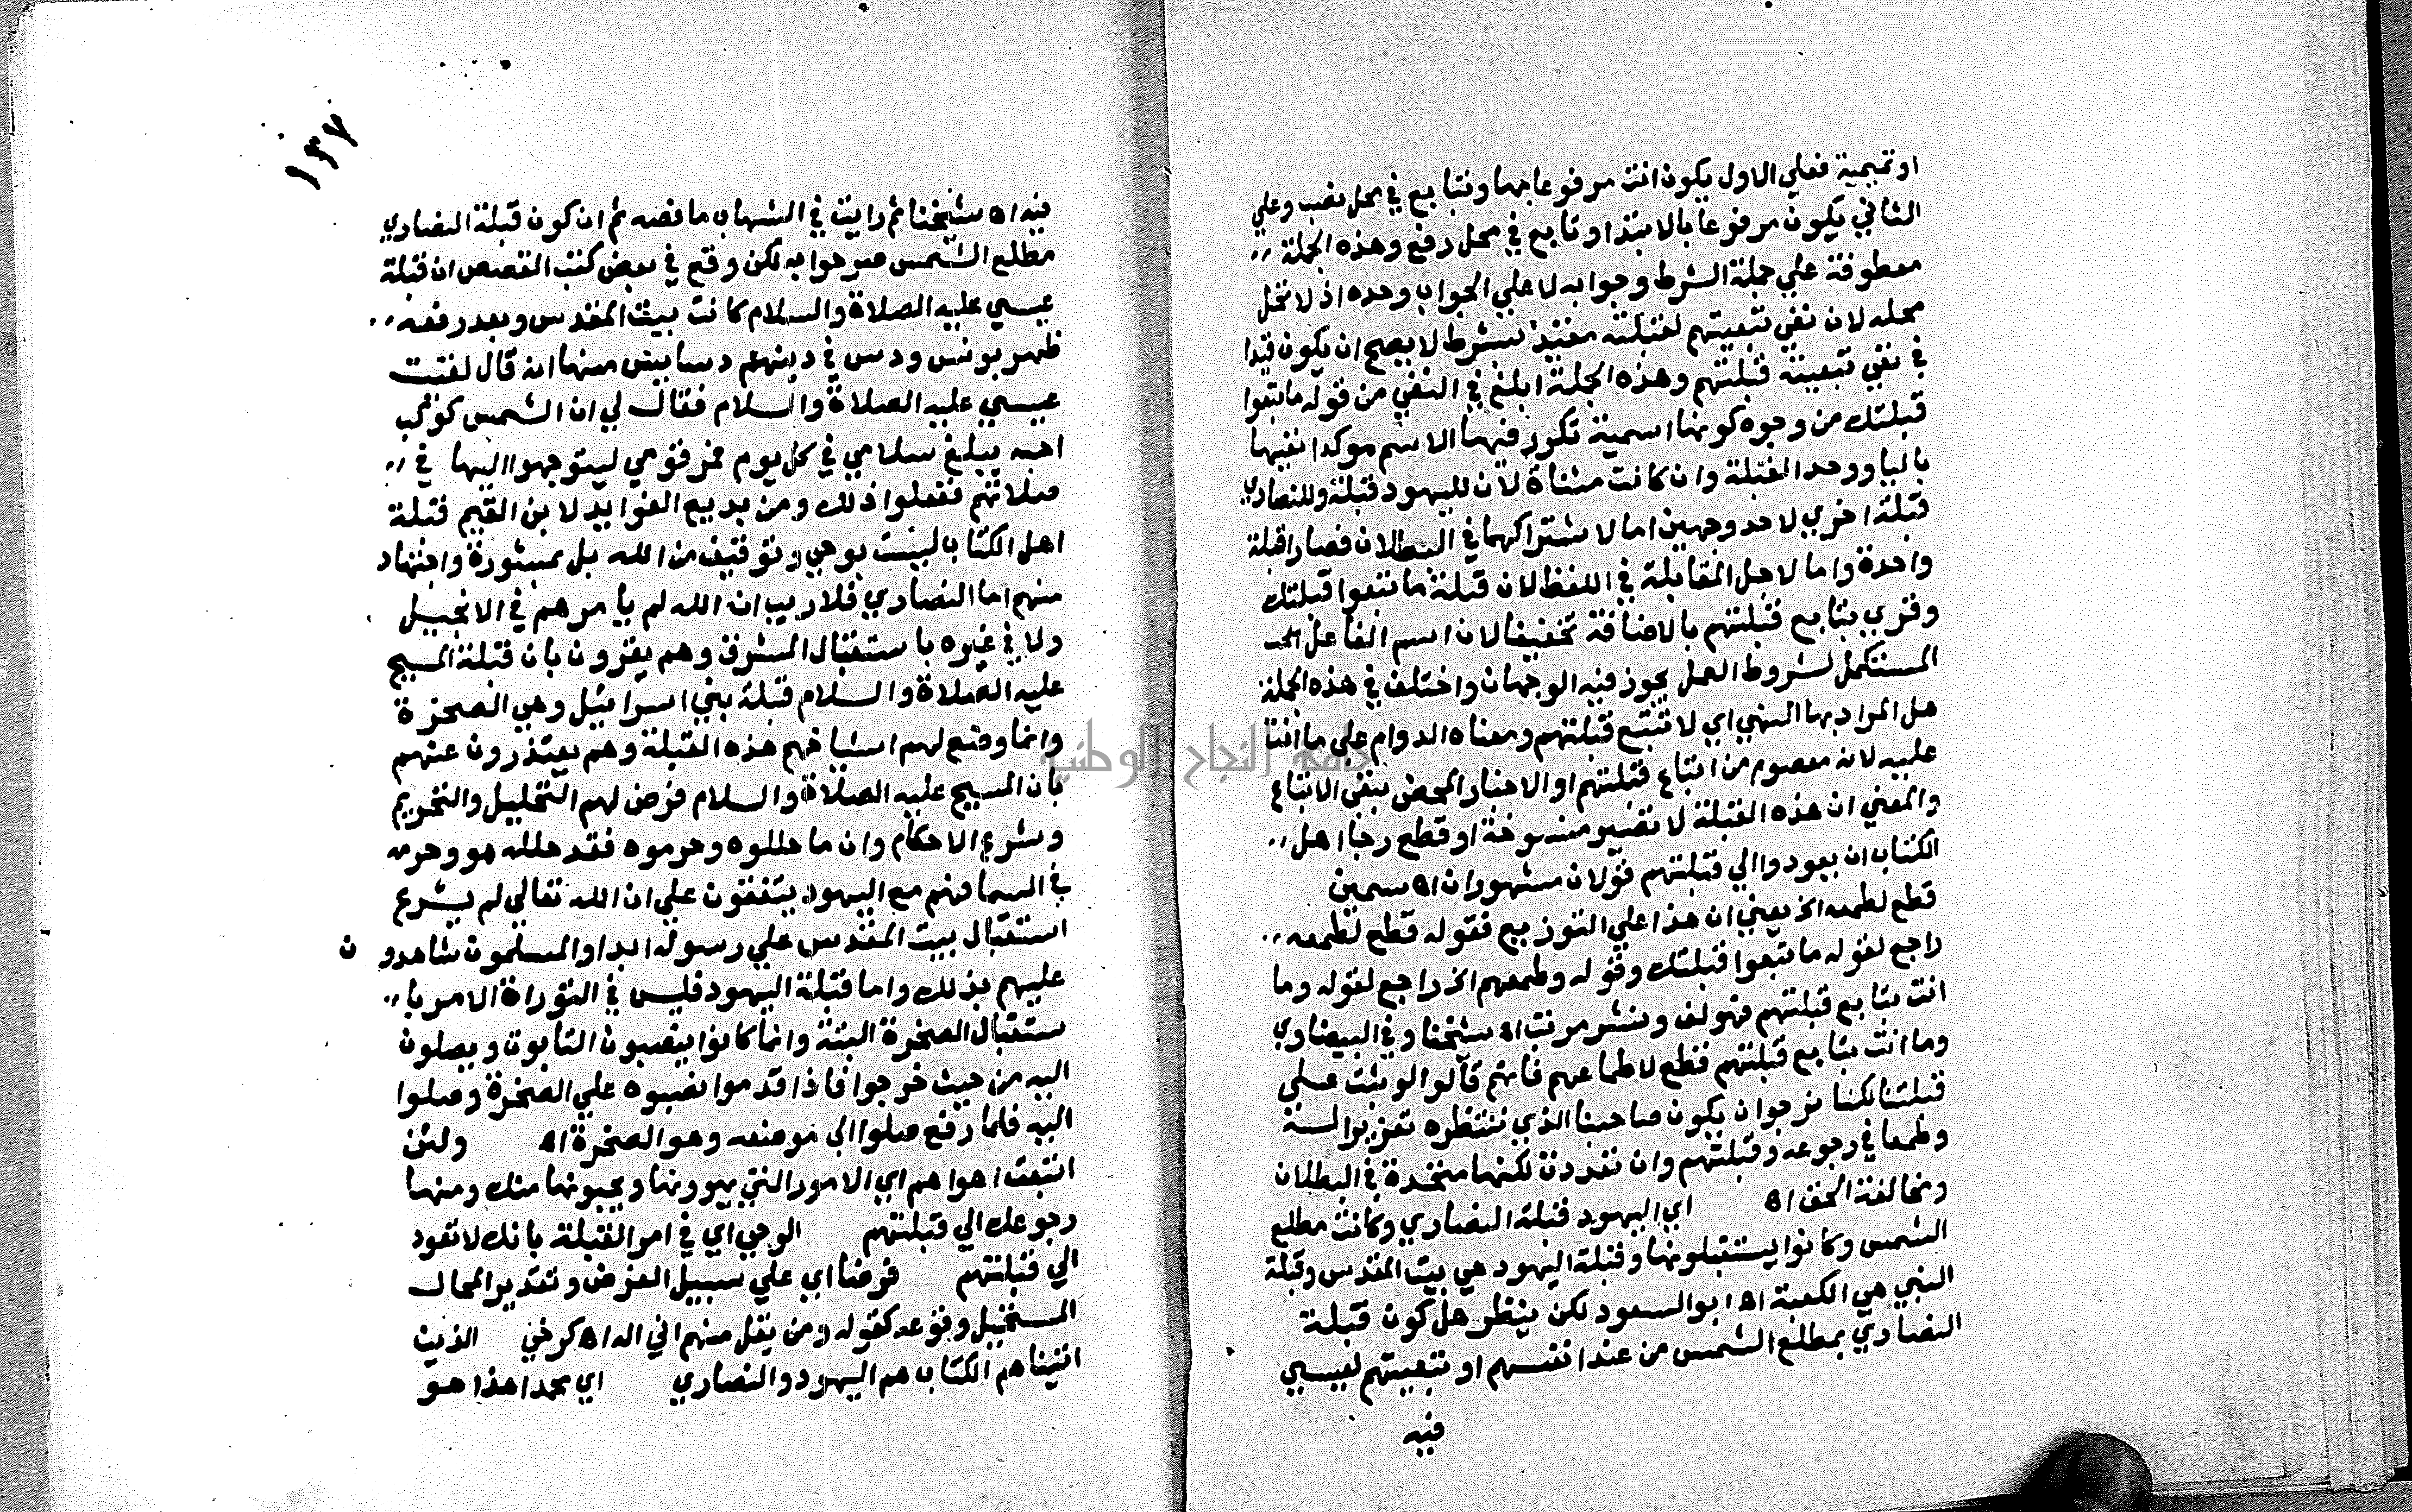 او تميمية فعلي الاول يكون انت مرفوعا بها وبتابع في محل نصب وعلي
الثاني يكون مرفوعا بالابتدا وتابع في محل رفع وهذه الجملة
معطوفة علي جملة الشرط وجوابه لا علي الجواب وحده اذ لا تحل
محله لان نفي تبعيتهم لقبلته مقيد بشرط لا يصح ان يكون قيدا
في نفي تبعيته قبلتهم وهذه الجملة ابلغ في النفي من قوله ما تبعوا
قبلتك من وجوه كونها اسمية تكرر فيها الاسم موكدا نفيها
بالبا ووحد القبلة وان كانت مثناة لان لليهود قبلة وللنصاري
قبلة اخري لاحد وجهين اما لاشتراكهما في البطلان فصارا قبلة
واحدة واما لاجل المقابلة في اللفظ لان قبلة ما تبعوا قبلتك
وقري بتابع قبلتهم بالاضافة تخفيفا لان اسم الفاعل
المستكمل لشروط العمل يجوز فيه الوجهان واختلف في هذه الجملة
هل المراد بها النهي اي لا تتبع قبلتهم ومعناه الدوام علي ما انت
عليه لانه معصوم من اتباع قبلتهم او الاخبار المحض بنفي الاتباع
والمعني ان هذه القبلة لا تصير منسوخة او قطع رجا اهل
الكتاب ان يعودوا الي قبلتهم قولان مشهوران اه سمين
قطع لطمعه الخ يعني ان هذا علي التوزيع فقوله قطع لطمعه
راجع لقوله ما تبعوا قبلتك وقوله وطمعهم الخ راجع لقوله وما
انت بتابع قبلتهم فهو لف ونشر مرتب اه شيخنا وفي البيضاوي
وما انت بتابع قبلتهم قطع لاطماعهم فانهم قالوا لو ثبت علي
قبلتنا لكنا نرجوا ان يكون صاحبنا الذي ننتظره تغريرا له
وطمعا في رجوعه وقبلتهم وان تعددت لكنها متحدة في البطلان
ومخالفة الحق اه اي اليهود قبلة النصاري وكانت مطلع
الشمس وكانوا يستقبلونها وقبلة اليهود هي بيت المقدس وقبلة
النبي هي الكعبة اه ابو السعود لكن ينظر هل كون قبلة
النصاري بمطلع الشمس من عند انفسهم او بتبعيتهم لعيسي
فيه
١٣٧
فيه اه شيخنا ثم رايت في الشهاب ما نصه ثم ان كون قبلة النصاري
مطلع الشمس صرحوا به لكن وقع في بعض كتب القصص ان قبلة
عيسي عليه الصلاة والسلام كانت بيت المقدس وبعد رفعه
ظهر بونس ودس في دينهم دسايس منها انه قال لقيت
عيسي عليه الصلاة والسلام فقال لي ان الشمس كوكب
احبه يبلغ سلامي في كل يوم فمر قومي ليتوجهوا اليها في
صلاتهم ففعلوا ذلك ومن بديع الفوايد لابن القيم قبلة
اهل الكتاب ليست بوحي وتوقيف من الله بل بمشورة واجتهاد
منهم اما النصاري فلا ريب ان الله لم يامرهم في الانجيل
ولا في غيره باستقبال المشرق وهم يقرون بان قبلة المسيح
عليه الصلاة والسلام قبلة بني اسرائيل وهي الصخرة
وانما وضع لهم اشياخهم هذه القبلة وهم يعتذرون عنهم
بان المسيح عليه الصلاة والسلام فوض لهم التحليل والتحريم
وشرع الاحكام وان ما حللوه وحرموه فقد حلله هو وحرمه
في السما فهم مع اليهود يتفقون علي ان الله تعالي لم يشرع
استقبال بيت المقدس علي رسوله ابدا والمسلمون شاهدو ن
عليهم بذلك واما قبلة اليهود فليس في التوراة الامر با
ستقبال الصخرة البتة وانما كانوا ينصبون التابوت ويصلون
اليه من حيث خرجوا فاذا قدموا نصبوه علي الصخرة وصلوا
اليه فلما رفع صلوا الي موضعه وهو الصخرة اه ولئن
اتبعت اهواهم اي الامور التي يهوونها ويحبونها منك ومنها
رجوعك الي قبلتهم الوحي اي في امر القبلة بانك لا تعود
الي قبلتهم فرضا اي علي سبيل الفرض وتقدير المحال
المستحيل وقوعه كقوله ومن يقل منهم اني اله اه كرخي الذين
اتيناهم الكتاب هم اليهود والنصاري اي محمدا هذا هو
جامعة النجاح الوطنية